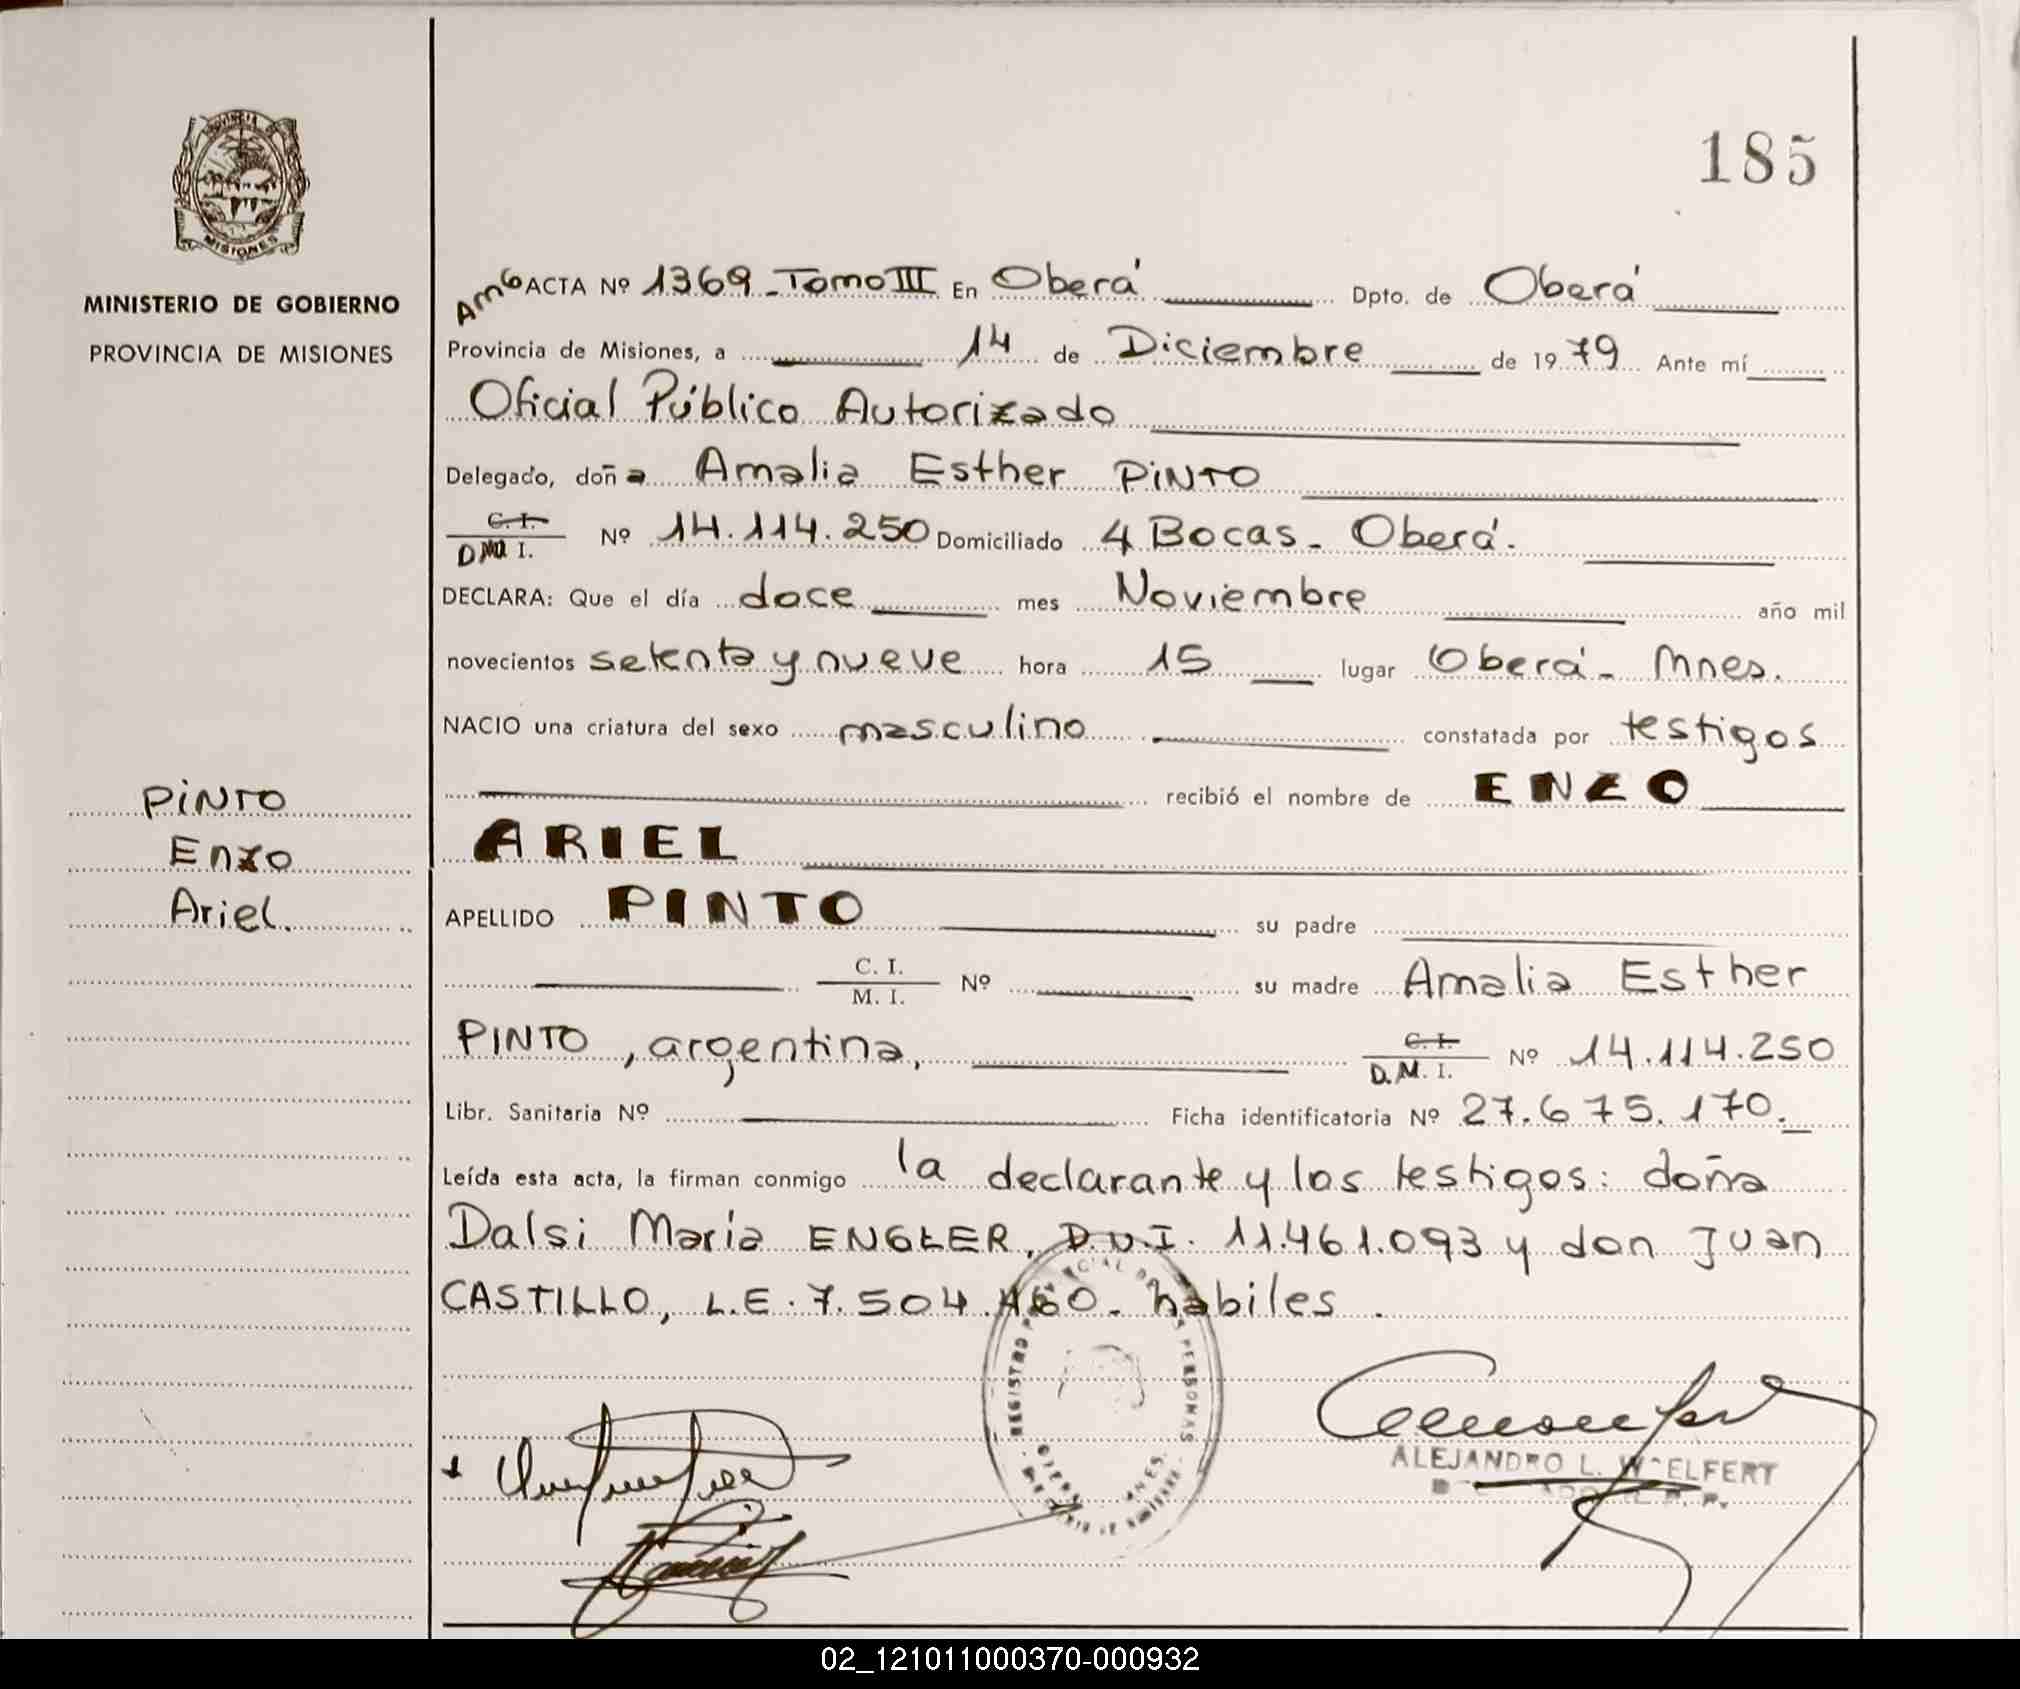 185
PROVINCIA DE
MISIONES
MINISTERIO DE GOBIERNO
PROVINCIA DE MISIONES
ACTA Nº 1369 - Tomo III En Oberá Dpto. de Oberá
Provincia de Misiones, a 14 de Diciembre de 1979 Ante mí
Oficial Público Autorizado
Delegado, doña Amalia Esther PINTO
C. I.
D. I. Nº 14.114.250 Domiciliado 4 Bocas - Oberá.
DECLARA: Que el día doce mes Noviembre año mil
novecientos setenta y nueve hora 15 lugar Oberá - Mnes.
NACIO una criatura del sexo masculino constatada por testigos
recibió el nombre de ENZO
ARIEL
APELLIDO PINTO su padre
C. I.
M. I. Nº su madre Amalia Esther
PINTO, argentina,
C. I.
D.M. I. Nº 14.114.250
Libr. Sanitaria Nº Ficha identificatoria Nº 27.675.170.
Leída esta acta, la firman conmigo la declarante y los testigos: doña
Dalsi María ENGLER, D.N.I. 11.461.093 y don Juan
CASTILLO, L.E. 7.504.160 - hábiles.
PINTO
Enzo
Ariel.
REGISTRO PROVINCIAL DE LAS PERSONAS
ALEJANDRO L. WOELFERT
02_121011000370-000932